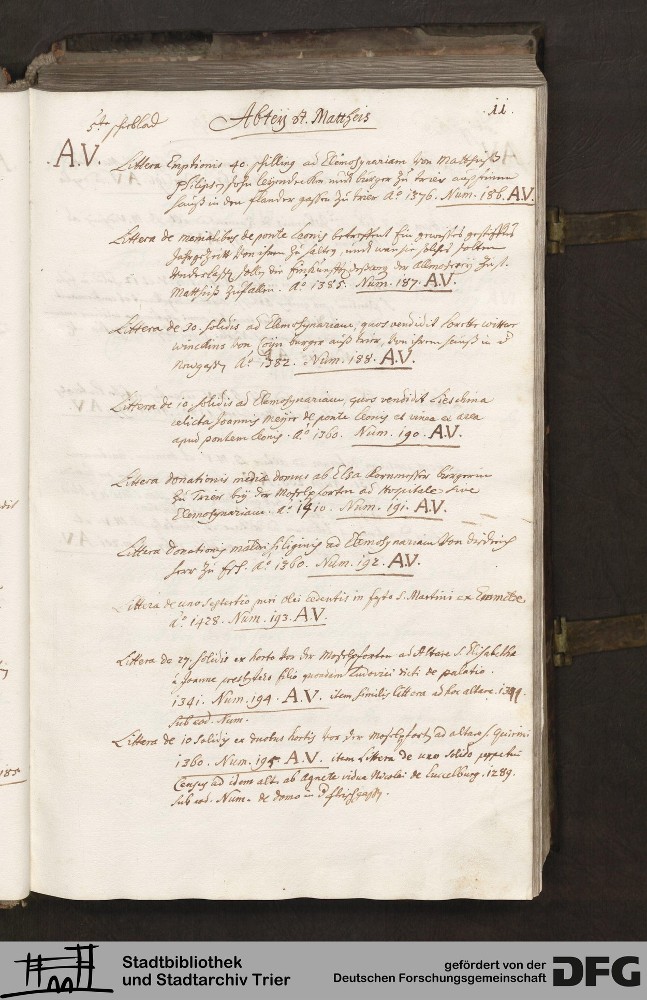 11.
5te schiblad
Abteÿ St. Mattheis
A.V.
Littera Emptionis 40. schilling ad Elemosynariam von Matthiß
Philips sohn leyendecker undt burger zu trier auf seinem
hauß in den flander gassen zu trier Aō 1376. Num. 186. A.V.
Littera de monialibus de ponte Leonis betreffent
Jahrgezeitt von ihnen zu halten, undt wan sie solches halten
underlassen
Mattheiß zufallen. Aō 1385. Num. 187. A.V.
Littera de 30. solidis ad Elemosynariam, quos vendidit
von burger auß trier, von ihrem hauß in d
Neugassen Aō 1382. Num. 188. A.V.
Littera de 10. solidis ad Elemosynariam, quos vendidit
relicta Joannis Meyer de ponte Leonis et vinea ex area
apud pontem Leonis. Aō 1360. Num. 190. A.V.
Littera donationis mediæ domus ab Elsa burgerin
zu Trier beÿ der Moselpforten ad Hospitale sive
Elemosynariam. aō 1410. Num. 191. A.V.
Littera donationis maldri siliginis ad Elemosynariam von
herr zu Aō 1360. Num. 192. A.V.
Littera de uno sextertio olei cedentis in festo S. Martini ex
aō 1428. Num. 193. A.V.
Littera de 27. solidis ex horto vor der Moselpforten ad Altare S. Elisabethæ
a Joanne presbytero filio quondam Ludovici dicti de palatio.
1341. Num. 194. A.V. item similis littera ad hoc altare.
sub eod. Num.
Littera de 10 solidis ex duobus hortis vor der Moselpfort ad altare S. Quirini
1360. Num. 195 A.V. item Littera de uno solido perpetui
Census ad idem altare ab Agnete vidua Nicolai de Lucelburg. 1289.
sub eod. Num. de domo in d fleischgassen.
185
Stadtbibliothek
und Stadtarchiv Trier
gefördert von der
Deutschen Forschungsgemeinschaft
DFG